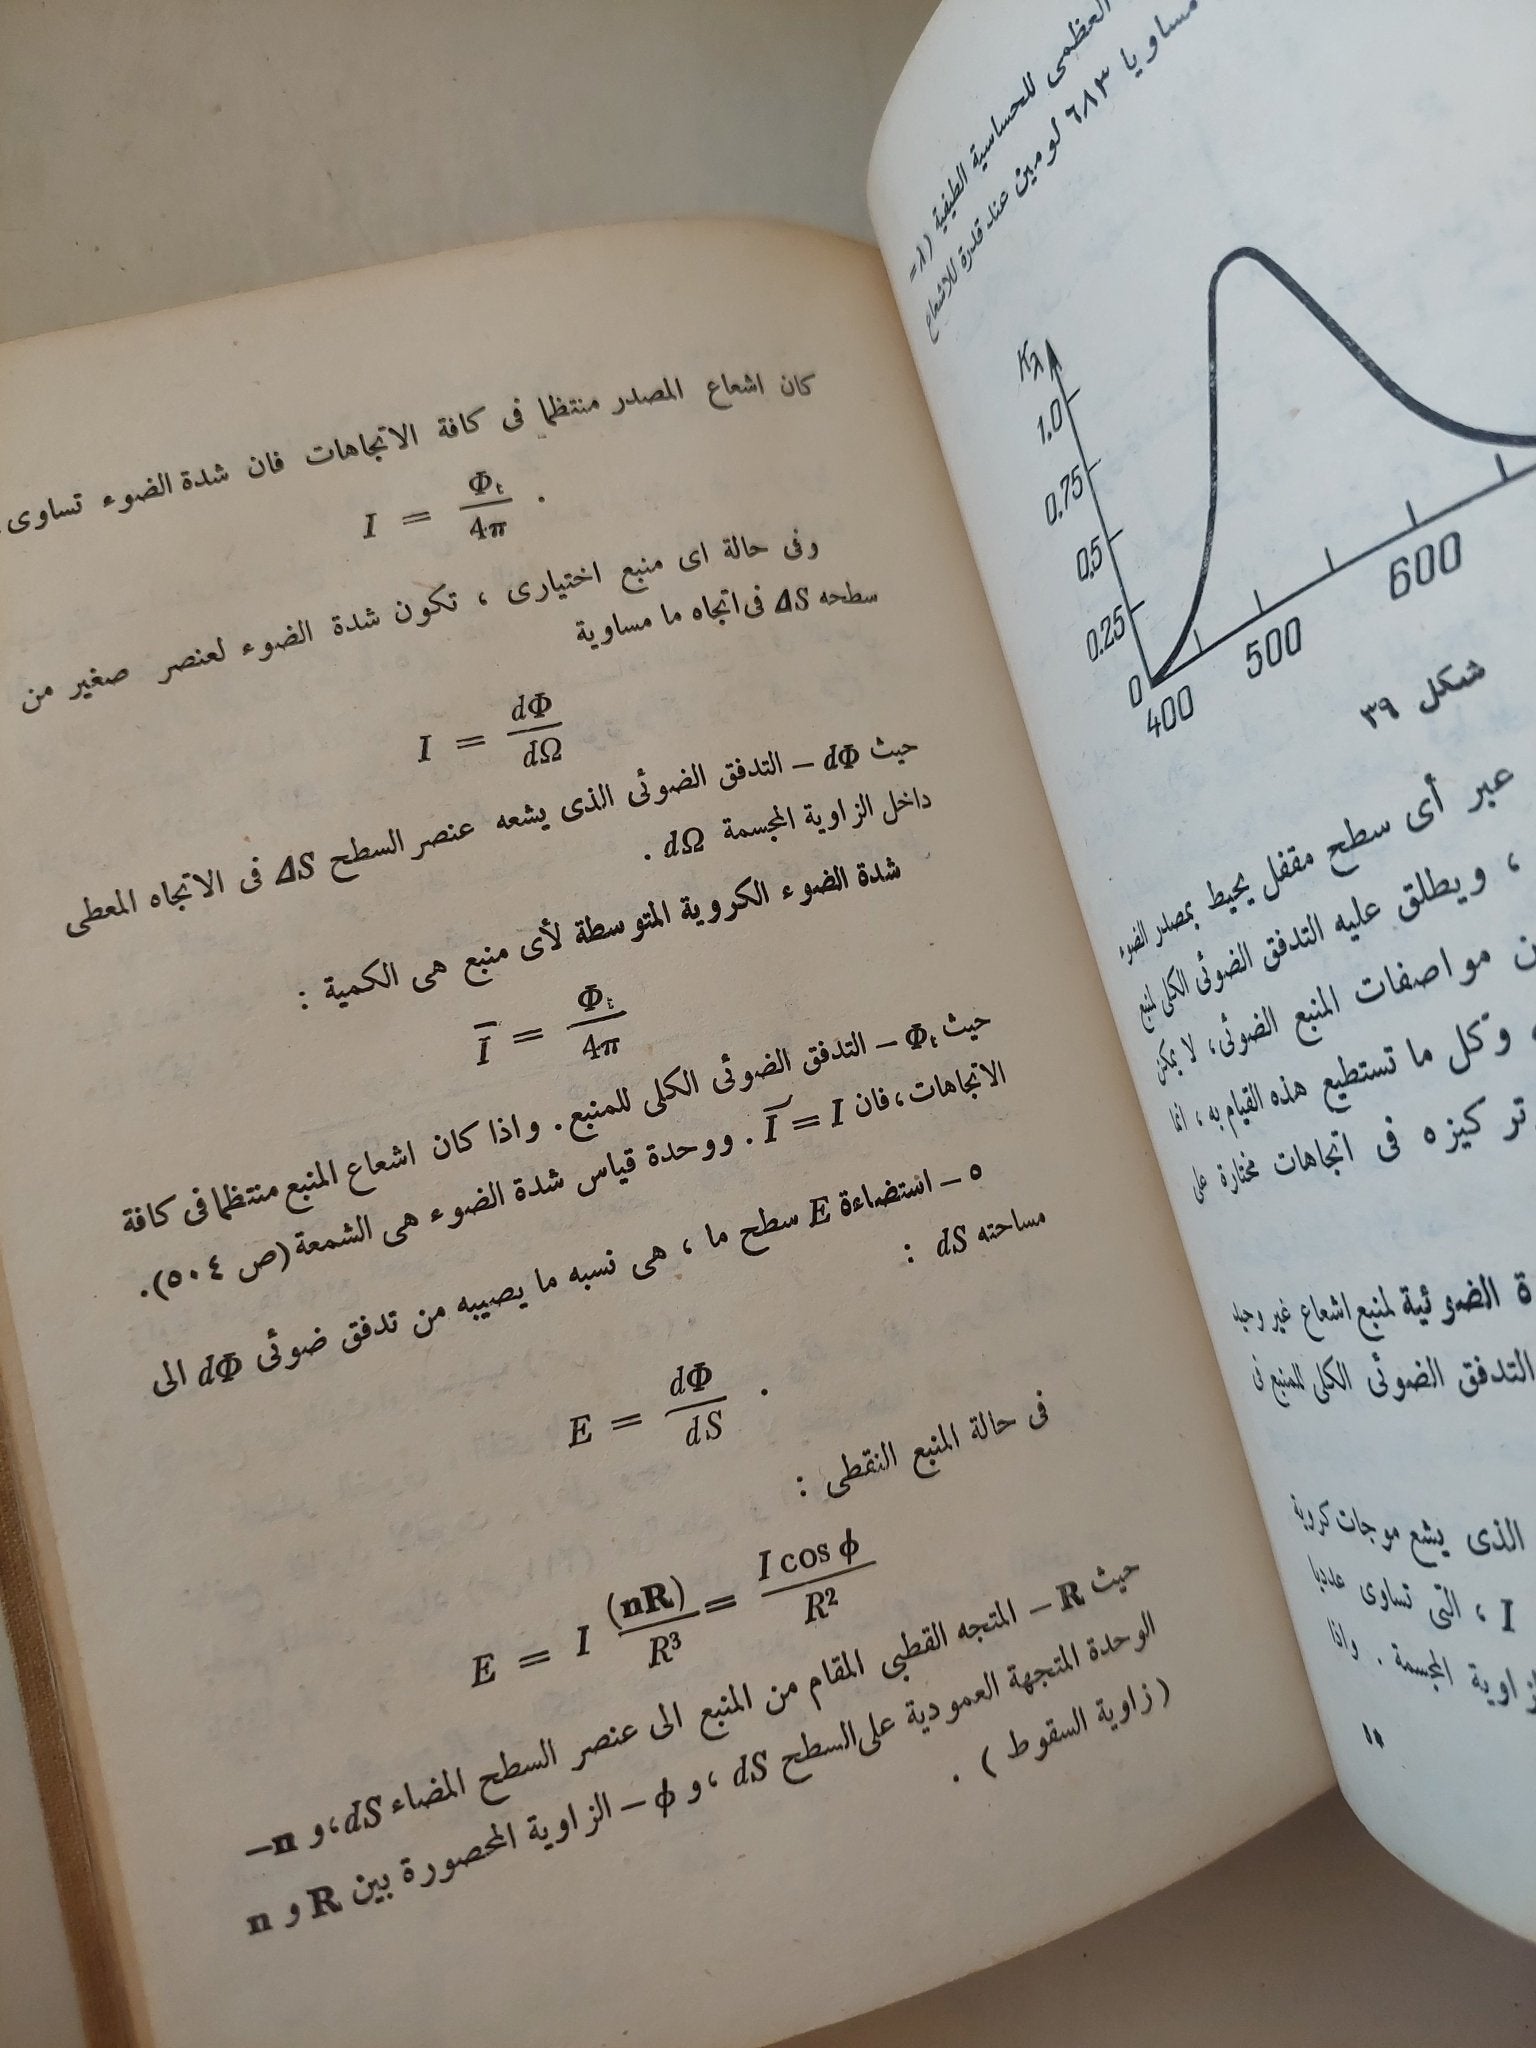 العظمى للحساسية الطيفية
مساويا ٦٨٣ لومين عند قدرة للاشعاع
Kλ
1.0
0.75
0.5
0.25
0
400
500
600
شكل ٣٩
عبر أى سطح مقفل يحيط بمصدر الضوء
، ويطلق عليه التدفق الضوئى الكلى لمنبع
مواصفات المنبع الضوئى، لا يمكن
وكل ما تستطيع هذه القيام به ، انما
تركيزه فى اتجاهات مختارة على
الضوئية لمنبع اشعاع غير وحيد
التدفق الضوئى الكلى للمنبع فى
الذى يشع موجات كروية
I ، التى تساوى عدديا
المجسمة . واذا
كان اشعاع المصدر منتظما فى كافة الاتجاهات فان شدة الضوء تساوى
I = Φt / 4π .
وفى حالة اى منبع اختيارى ، تكون شدة الضوء لعنصر صغير من
سطحه ΔS فى اتجاه ما مساوية
I = dΦ / dΩ
حيث dΦ – التدفق الضوئى الذى يشعه عنصر السطح ΔS فى الاتجاه المعطى
داخل الزاوية المجسمة dΩ .
شدة الضوء الكروية المتوسطة لأى منبع هى الكمية :
Ī = Φt / 4π
حيث Φt – التدفق الضوئى الكلى للمنبع . واذا كان اشعاع المنبع منتظما فى كافة
الاتجاهات ، فان Ī = I . ووحدة قياس شدة الضوء هى الشمعة (ص ٥٠٤).
٥ – استضاءة E سطح ما ، هى نسبه ما يصيبه من تدفق ضوئى dΦ الى
مساحته dS :
E = dΦ / dS .
فى حالة المنبع النقطى :
E = I (nR) / R³ = I cos ϕ / R²
حيث R – المتجه القطبى المقام من المنبع الى عنصر السطح المضاء dS، و n –
الوحدة المتجهة العمودية على السطح dS ، و ϕ – الزاوية المحصورة بين R و n
(زاوية السقوط) .